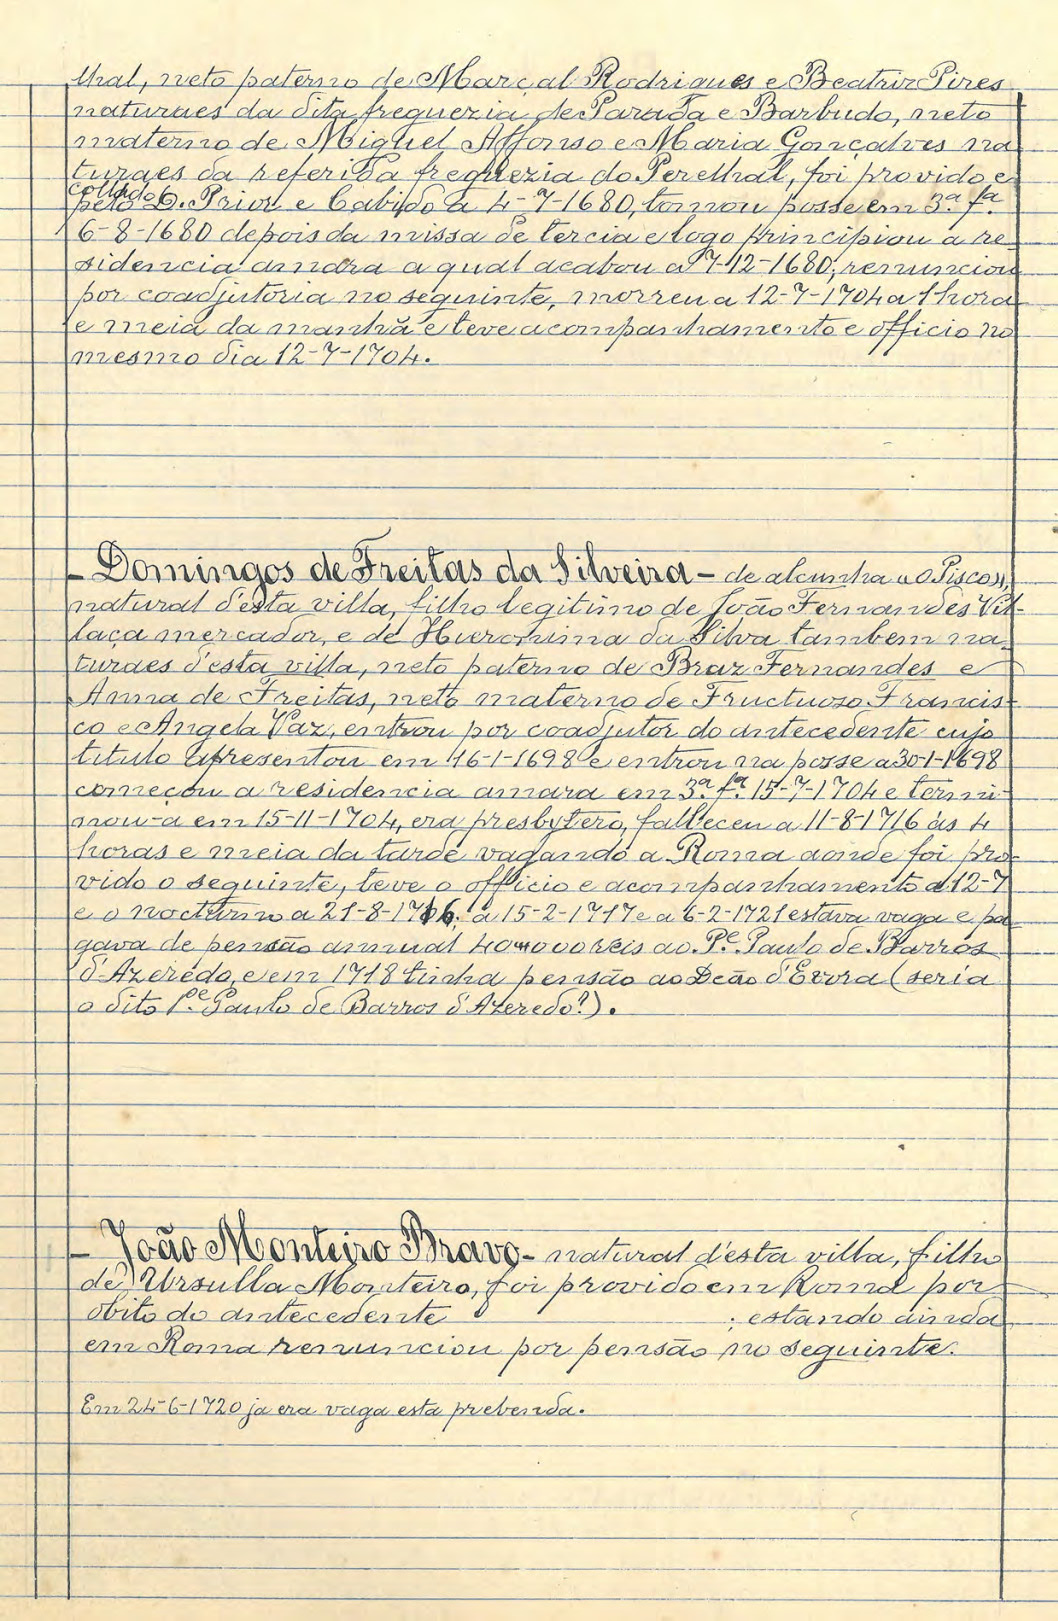 thal, neto paterno de Marçal Rodrigues e Beatriz Pires
naturaes da dita freguezia de Parada e Barbudo, neto
materno de Miguel Affonso e Maria Gonçalves na
turaes da referida freguezia do Perelhal, foi provido e
collado
pelo D. Prior e Cabido a 4-7-1680, tomou posse em 3.ª f.ª
6-8-1680 depois da missa de tercia e logo principiou a re-
sidencia amara a qual acabou a 7-12-1680; renunciou
por coadjutoria no seguinte, morreu a 12-7-1704 a 1 hora
e meia da manhã e teve acompanhamento e officio no
mesmo dia 12-7-1704.
- Domingos de Freitas da Silveira - de alcunha «O Pisco»,
natural d'esta villa, filho legitimo de João Fernandes Vil-
laça mercador, e de Hieronima da Silva tambem na-
turaes d'esta villa, neto paterno de Braz Fernandes e
Anna de Freitas, neto materno de Fructuozo Francis-
co e Angela Vaz, entrou por coadjutor do antecedente cujo
titulo apresentou em 16-1-1698 e entrou na posse a 30-1-1698
começou a residencia amara em 3.ª f.ª 15-7-1704 e termi-
nou-a em 15-11-1704, era presbytero, falleceu a 11-8-1716 ás 4
horas e meia da tarde vagando a Roma aonde foi pro-
vido o seguinte, teve o officio e acompanhamento a 12-7
e o nocturno a 21-8-1716; a 15-2-1717 e a 6-2-1721 estava vaga e pa-
gava de pensão annual 40000 reis ao P.e Paulo de Barros
d'Azeredo, e em 1718 tinha pensão ao Deão d'Evora (seria
o dito P.e Paulo de Barros d'Azeredo?).
- João Monteiro Bravo - natural d'esta villa, filho
de Ursulla Monteiro, foi provido em Roma por
obito do antecedente ; estando ainda
em Roma renunciou por pensão no seguinte.
Em 24-6-1720 ja era vaga esta prebenda.